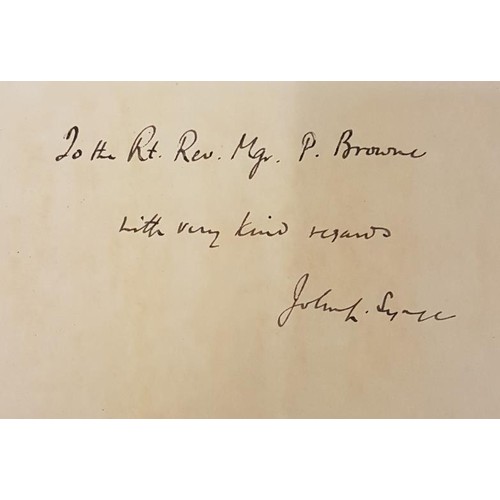 To the Rt. Rev. Mgr. P. Browne
with very kind regards
John L. Synge